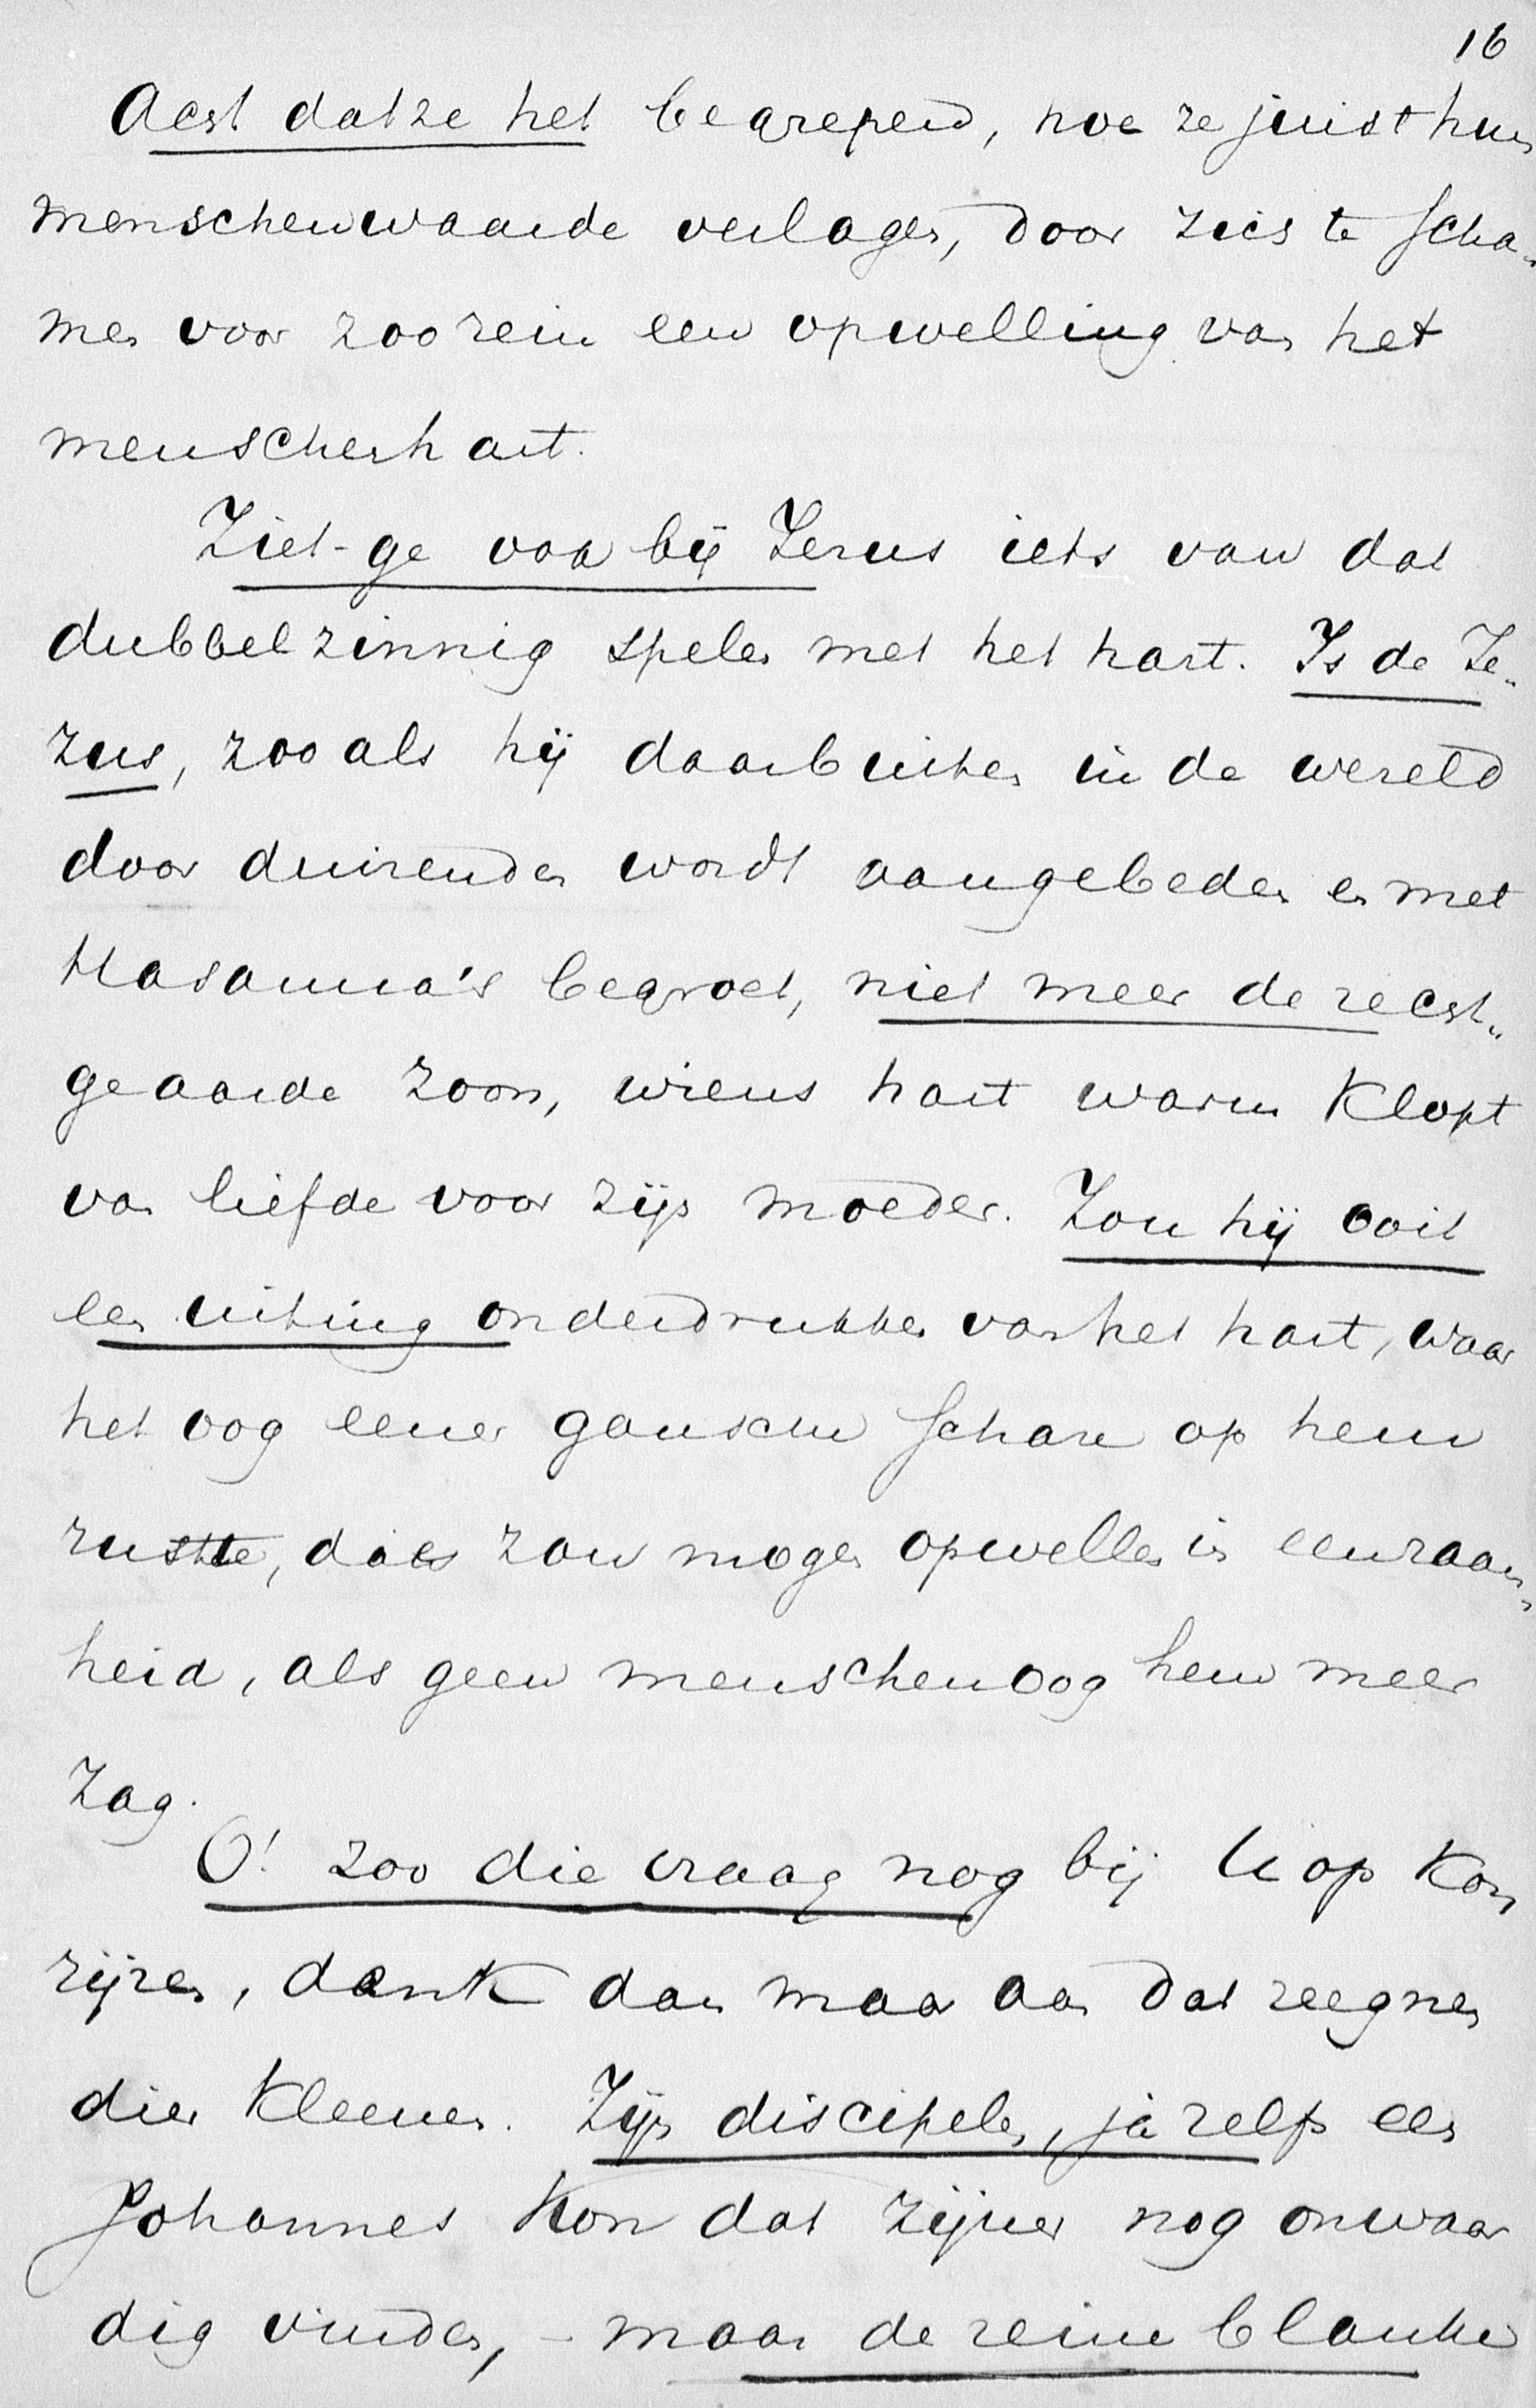 16
Acht dat ze het begrepen, hoe ze juist hun
menschenwaarde verlagen, door zich te scha-
men voor zoo rein een opwelling van het
menschenhart.
Ziet-ge voor bij Jezus iets van dat
dubbelzinnig spelen met het hart. Is de Je-
zus, zooals hij daarbuiten in de wereld
door duizenden wordt aangebeden en met
Hosanna's begroet, niet meer de recht-
geaarde zoon, wiens hart warm klopt
van liefde voor zijn moeder. Zou hij ooit
een uiting onderdrukken van het hart, waar
het oog eener gansche schare op hem
rustte, die zou mogen opwellen in eenzaam-
heid, als geen menschenoog hem meer
zag.
O! zoo die vraag nog bij U op kon
rijzen, denk dan maar aan dat zeegnen
dier kleenen. Zijn discipelen, ja zelfs een
Johannes kon dat zijner nog onwaar
dig vinden, - maar de reine blanke